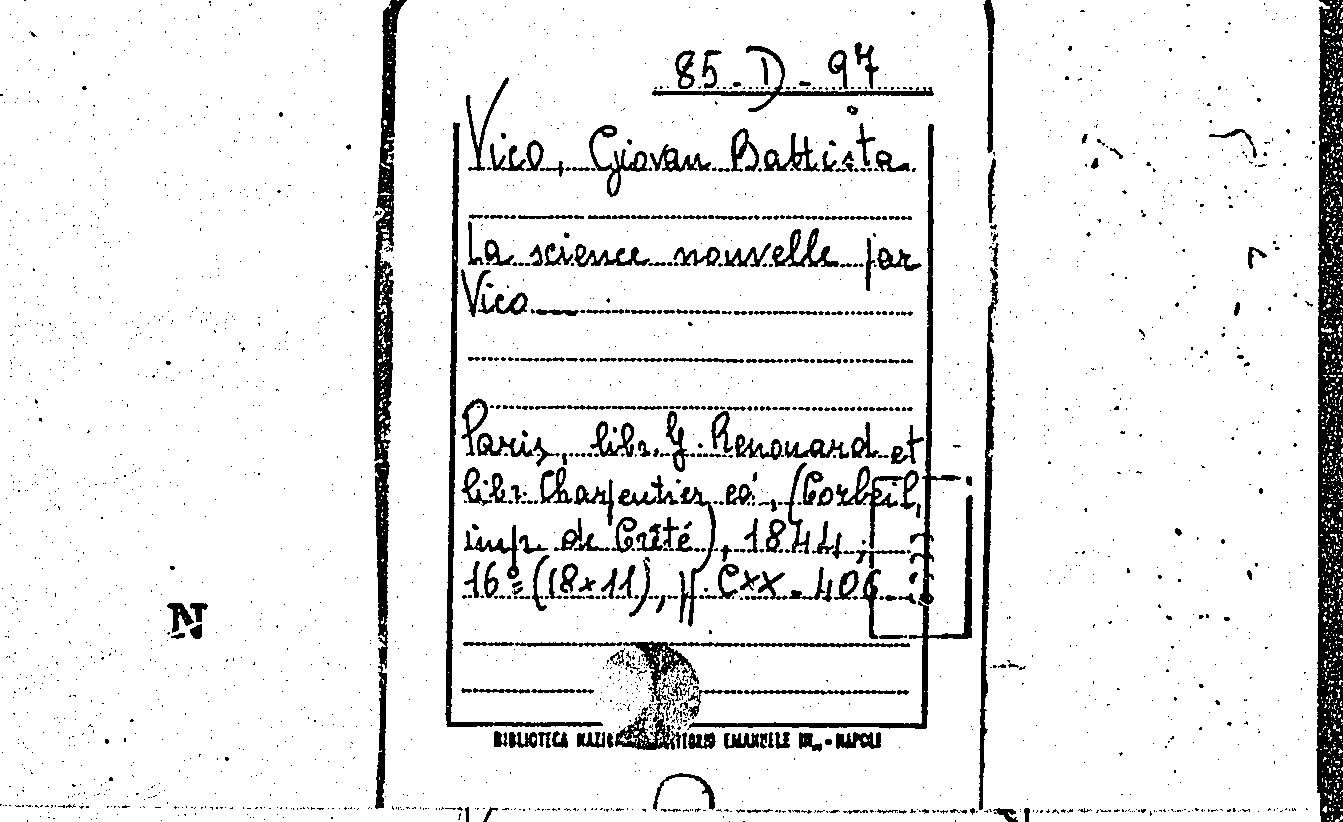 85-D-97
Vico, Giovan Battista
La science nouvelle par
Vico
Paris, libr. J. Renouard et
libr. Charpentier ed., (Corbeil,
impr. de Crété), 1844,
16° (18x11), pp. CXX-406
N
BIBLIOTECA VITTORIO EMANUELE III - NAPOLI